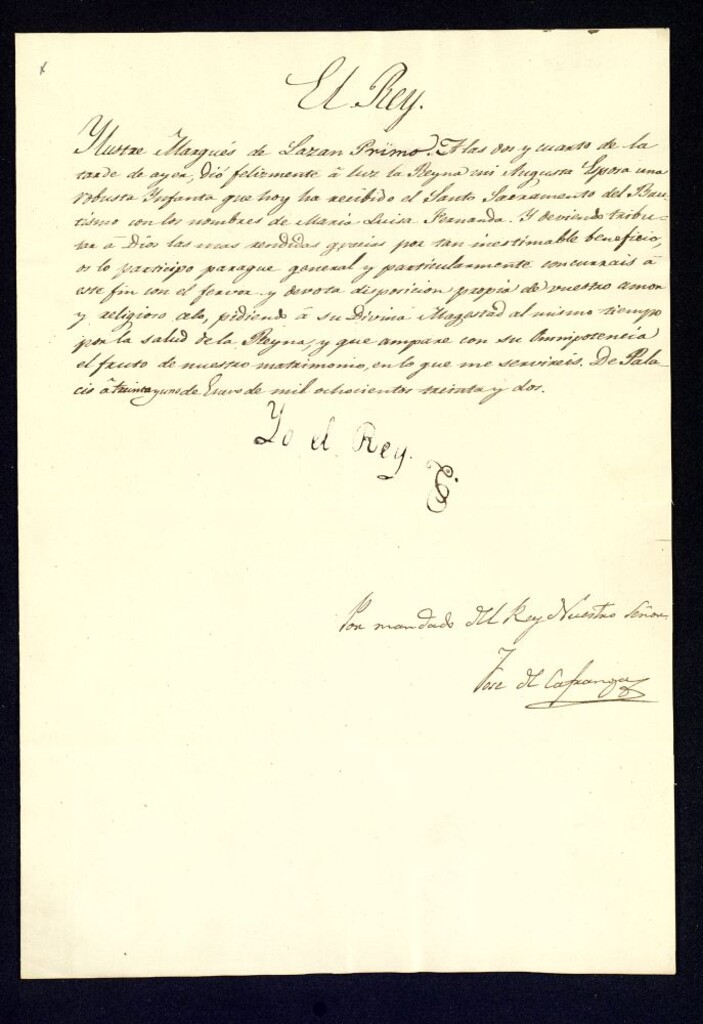 El Rey.
Ylustre Marqués de Lazan Primo. A las dos y cuarto de la
tarde de ayer, dió felizmente á luz la Reyna mi Augusta Esposa una
robusta Ynfanta que hoy ha recibido el Santo Sacramento del Bau-
tismo con los nombres de Maria Luisa Fernanda. Y deviendo tribu-
tar á Dios las mas rendidas gracias por tan inestimable beneficio,
os lo participo paraque general y particularmente concurrais á
este fin con el fervor y devota disposicion propia de vuestro amor
y religioso celo, pidiendo á su Divina Magestad al mismo tiempo
por la salud de la Reyna, y que ampare con su Omnipotencia
el fruto de nuestro matrimonio, en lo que me servireis. De Pala-
cio á treinta y uno de Enero de mil ochocientos treinta y dos.
Yo el Rey.
Por mandado del Rey Nuestro Señor.
Jose de Cafranga